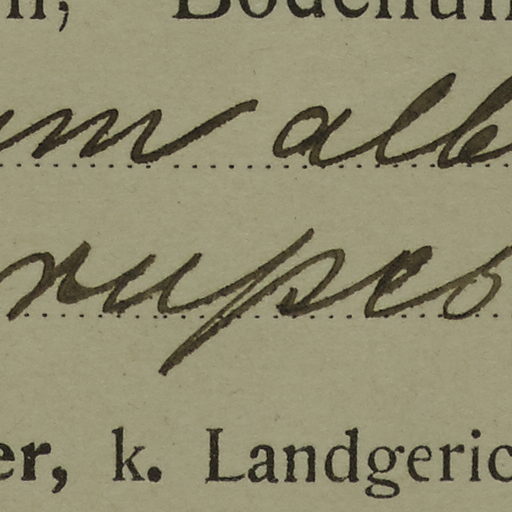 n, Bodenun
um alb
rupes
er, k. Landgeric